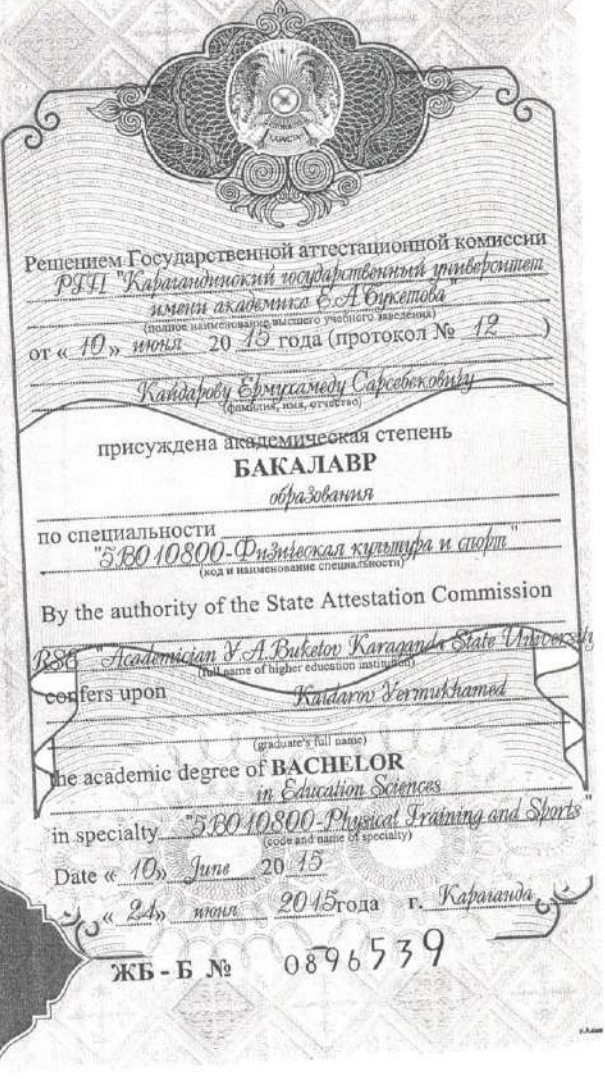 Решением Государственной аттестационной комиссии
РГП "Карагандинский государственный университет
имени академика Е.А.Букетова"
(полное наименование высшего учебного заведения)
от « 10 » июня 20 15 года (протокол № 12 )
Кайдарову Ермухамеду Сарсебековичу
(фамилия, имя, отчество)
присуждена академическая степень
БАКАЛАВР
образования
по специальности
"5В010800-Физическая культура и спорт"
(код и наименование специальности)
By the authority of the State Attestation Commission
RSE "Academician Y.A.Buketov Karaganda State University
(full name of higher education institution)
confers upon Kaidarov Yermukhamed
(graduate's full name)
the academic degree of BACHELOR
in Education Sciences
in specialty "5B010800-Physical Training and Sports"
(code and name of specialty)
Date « 10» June 20 15
« 24» июня 2015года г. Караганда
ЖБ - Б № 0896539